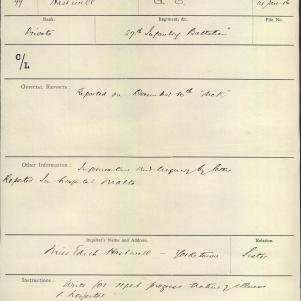 99 Hartwell G. C. 24 Jan 16
Rank. Regiment, &c. File No.
Private 27th Infantry Battalion
C/L
OFFICIAL REPORTS: Reported on December 10th "sick"
Other Information: Information and enquiry by letter
Reported In hospital Malta
Inquirer's Name and Address. Relation.
Miss Edith Hartwell - Yorketown Sister
Instructions: Write for report progress nature of illness
& hospital